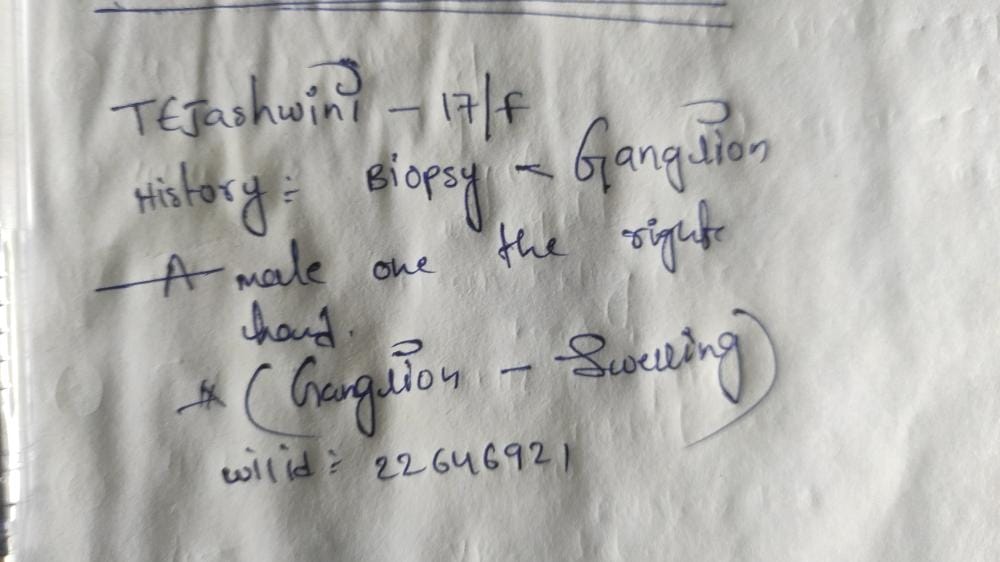 TEJashwini - 17/F
History : Biopsy - Ganglion
- A male one the right
hand.
* (Ganglion - Swelling)
wil id : 22646921